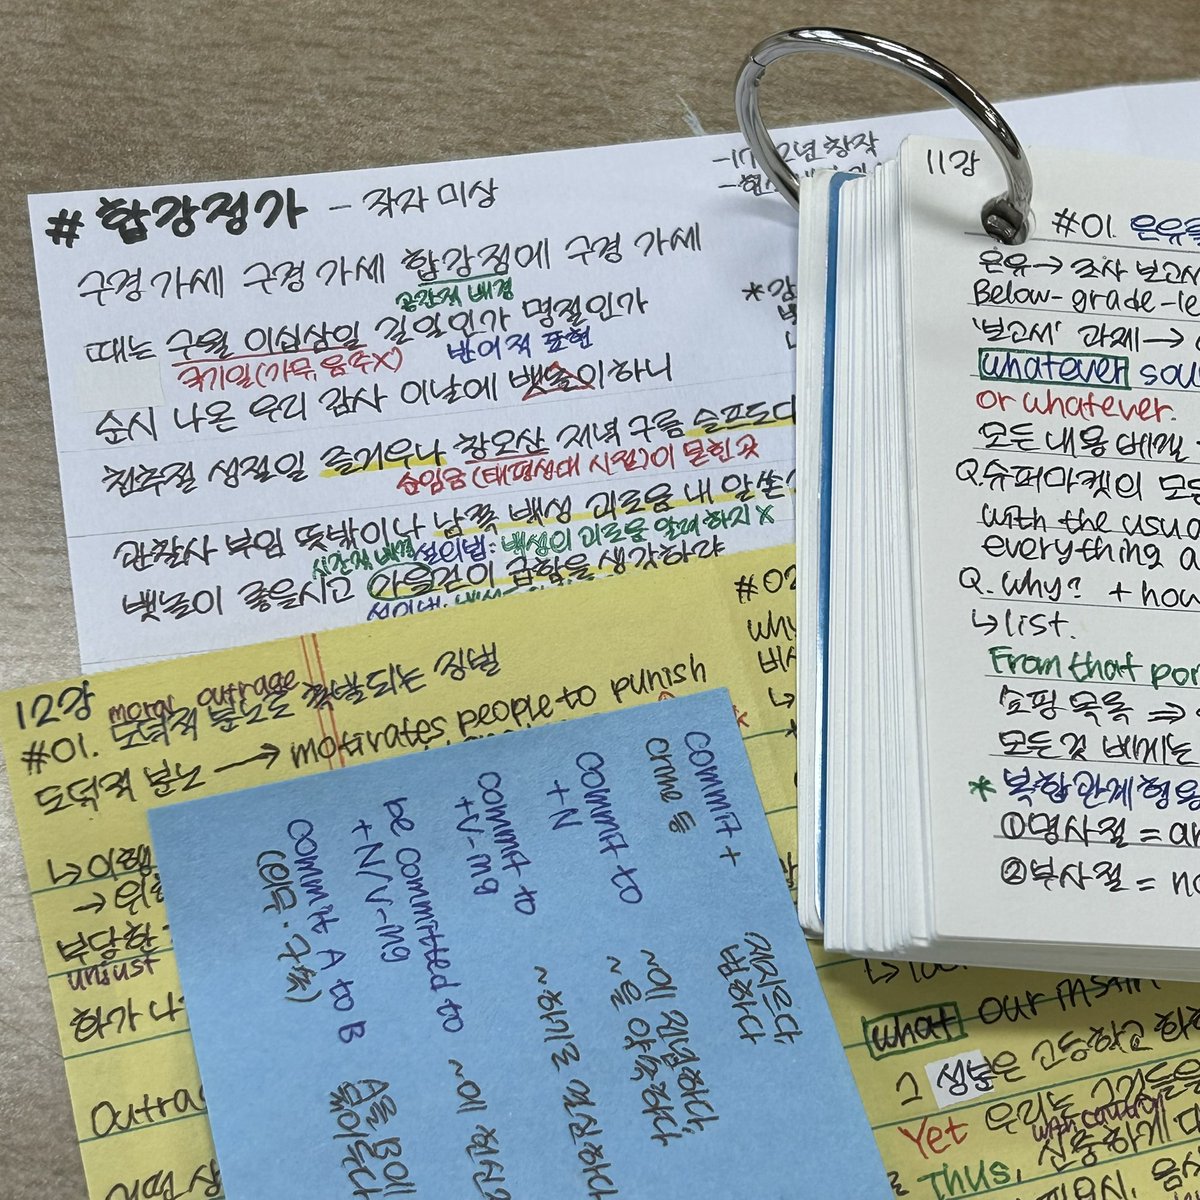 # 합강정가 - 작자 미상
-17 2년 창작
구경 가세 구경 가세 합강정에 구경 가세
공간적 배경
때는 구월 이십삼일 길일인가 명절인가
국기일(가무, 음주X) 반어적 표현
순시 나온 우리 감사 이날에 뱃놀이하니
천추절 성절일 즐거우나 창오산 저녁 구름 슬프도다
순임금(태평성대 시절)이 묻힌 곳
관찰사 부임 뜻밖이나 남쪽 백성 괴로움 내 알쏜
시간적 배경 설의법: 백성의 괴로움 알려 하지 X
뱃놀이 좋을시고 가을걷이 급함을 생각하랴
12강
moral outrage
#01. 도덕적 분노로 촉발되는 징벌
도덕적 분노 → motivates people to punish
↳ 이행
→ 위
부당한
unjust
하가 나
Outra
어떤 상
#02
why
비
commit +
crime 등
저지르다
범하다
commit to
+N
~에 전념하다,
~을 약속하다
commit to
+V-ing
~하기로 결심하다
be committed to
+N/V-ing
~에 헌신
commit A to B
(의무·구속)
A를 B에
11강
#01. 은유
은유 → 조사 보고서
Below-grade-le
'보고서' 과제 →
whatever sou
or whatever.
모든 내용 베껴
Q. 슈퍼마켓의 모든
with the usua
everything a
Q. why? + how
↳ list.
From that por
쇼핑 목록 ⇒
모든것 베끼는
* 복합관계형용
①명사절 = an
②부사절 = no
what our
그 성분은 고등학교
Yet 우리는 그것들을
with caution
Thus, 신중하게 다